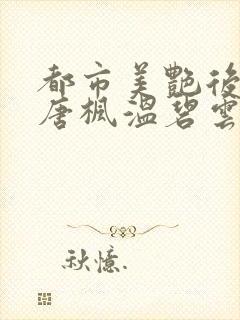 都市美艷後
唐楓溫碧雲
秋憶.